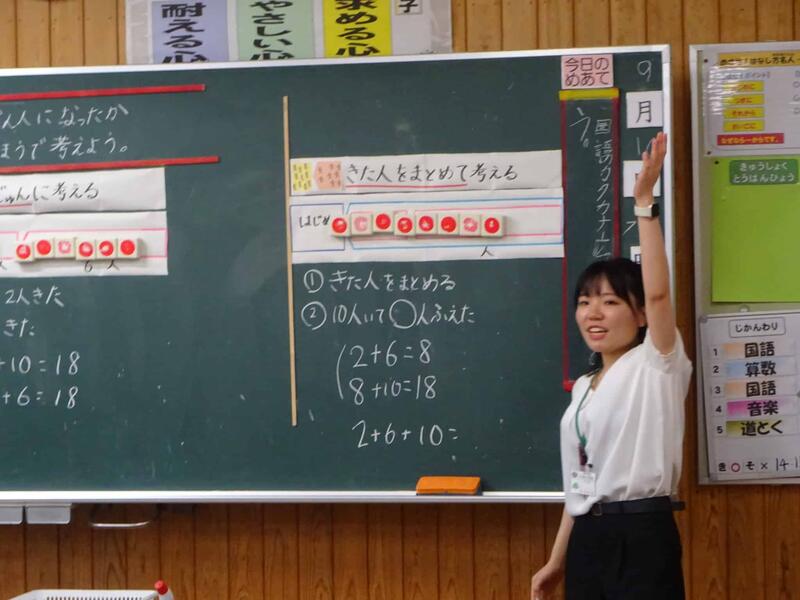 耐える心
やさしい心
求める心
子
今日の
めあて
9
月
人になったか
考えよう。
じゅんに考える
6人
2人きた
きた
+10=18
+6=18
きた人をまとめて考える
はじめ
人
① きた人をまとめる
② 10人いて◯人ふえた
2+6=8
8+10=18
2+6+10=
う。
はなし方名人
きゅうしょく
とうばんひょう
じかんわり
1 国語
2 算数
3 国語
4 音楽
5 道とく
き ○ そ × 14